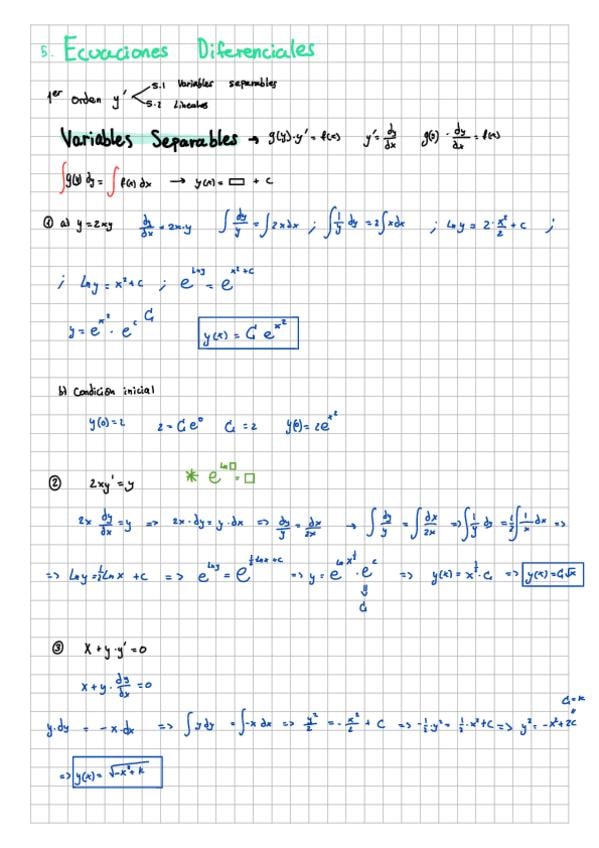 5. Ecuaciones Diferenciales
1er orden y' < 5.1 Variables separables
5.2 Lineales
Variables Separables → g(y)·y' = f(x) y' = dy/dx g(y)·dy/dx = f(x)
∫g(y) dy = ∫f(x) dx → y(x) = □ + c
① a) y = 2xy dy/dx = 2x·y ∫dy/y = ∫2x dx ; ∫1/y dy = 2∫x dx ; Ln y = 2·x²/2 + c ;
; Ln y = x² + c ; e^(Ln y) = e^(x²+c)
y = e^(x²)·e^c C₁ y(x) = C₁ e^(x²)
b) Condición inicial
y(0) = 2 2 = C₁e⁰ C₁ = 2 y(0) = 2e^(x²)
② 2xy' = y * e^(Ln□) = □
2x dy/dx = y => 2x·dy = y·dx => dy/y = dx/2x → ∫dy/y = ∫dx/2x => ∫1/y dy = 1/2∫1/x dx =>
=> Ln y = 1/2 Ln x + c => e^(Ln y) = e^(1/2 Ln x + c) => y = e^(Ln x^(1/2))·e^c => y(x) = x^(1/2)·C₁ => y(x) = C₁√x
C₁
③ x + y·y' = 0
x + y·dy/dx = 0
C₁ = k
y·dy = -x·dx => ∫y dy = ∫-x dx => y²/2 = -x²/2 + c => -1/2·y² = 1/2·x² + c => y² = -x² + 2c
=> y(x) = √(-x² + k)